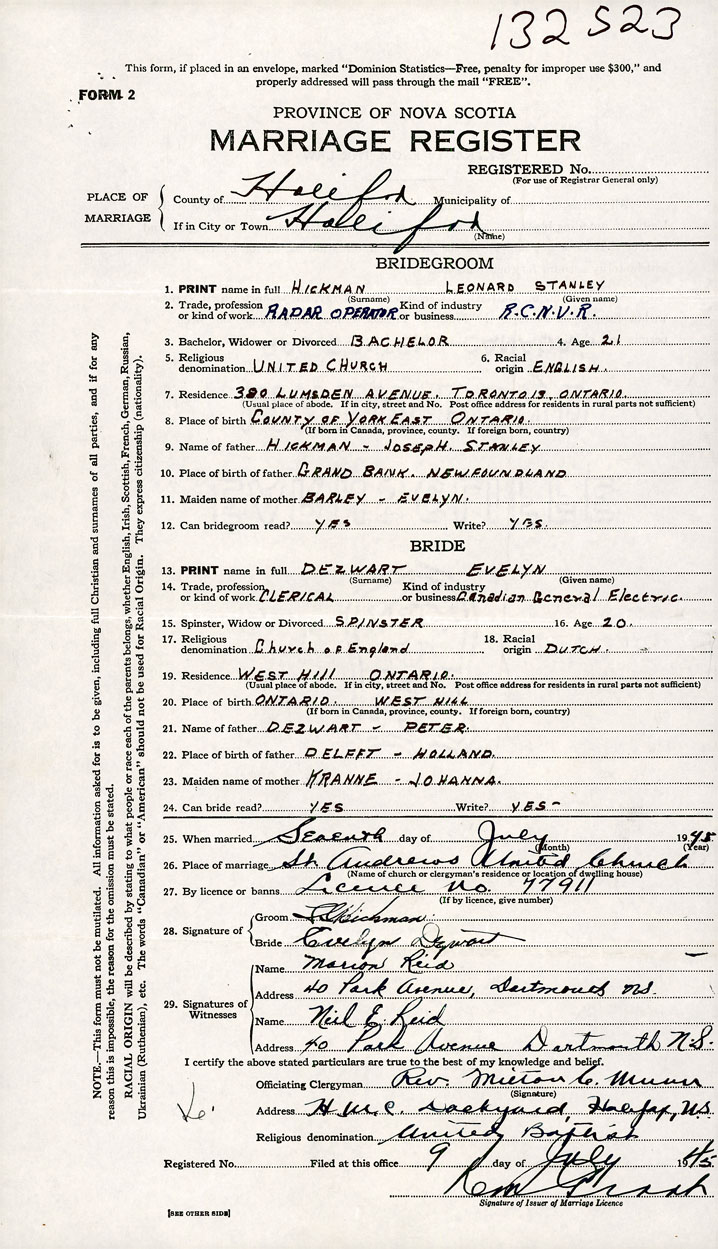 132523
This form, if placed in an envelope, marked "Dominion Statistics—Free, penalty for improper use $300," and
properly addressed will pass through the mail "FREE".
FORM 2
PROVINCE OF NOVA SCOTIA
MARRIAGE REGISTER
REGISTERED No.
(For use of Registrar General only)
PLACE OF MARRIAGE
County of Halifax Municipality of
If in City or Town Halifax
(Name)
BRIDEGROOM
1. PRINT name in full HICKMAN LEONARD STANLEY
(Surname) (Given name)
2. Trade, profession or kind of work RADAR OPERATOR Kind of industry or business R.C.N.V.R.
3. Bachelor, Widower or Divorced BACHELOR 4. Age 21
5. Religious denomination UNITED CHURCH 6. Racial origin ENGLISH.
7. Residence 380 LUMSDEN AVENUE. TORONTO 13, ONTARIO.
(Usual place of abode. If in city, street and No. Post office address for residents in rural parts not sufficient)
8. Place of birth COUNTY OF YORK EAST ONTARIO.
(If born in Canada, province, county. If foreign born, country)
9. Name of father HICKMAN - JOSEPH. STANLEY
10. Place of birth of father GRAND BANK. NEWFOUNDLAND
11. Maiden name of mother BARLEY - EVELYN.
12. Can bridegroom read? YES Write? YES.
BRIDE
13. PRINT name in full DEZWART EVELYN
(Surname) (Given name)
14. Trade, profession or kind of work CLERICAL Kind of industry or business Canadian General Electric.
15. Spinster, Widow or Divorced SPINSTER 16. Age 20.
17. Religious denomination Church of England 18. Racial origin DUTCH -
19. Residence WEST HILL ONTARIO.
(Usual place of abode. If in city, street and No. Post office address for residents in rural parts not sufficient)
20. Place of birth ONTARIO. WEST HILL
(If born in Canada, province, county. If foreign born, country)
21. Name of father DEZWART - PETER.
22. Place of birth of father DELFFT - HOLLAND.
23. Maiden name of mother KRANNE - JOHANNA.
24. Can bride read? YES Write? YES -
25. When married Seventh day of July 1945
(Month) (Year)
26. Place of marriage St. Andrews United Church
(Name of church or clergyman's residence or location of dwelling house)
27. By licence or banns Licence no. 77911
(If by licence, give number)
28. Signature of
Groom Hickman
Bride Evelyn Dezwart
29. Signatures of Witnesses
Name Marion Reid
Address 40 Park Avenue, Dartmouth NS.
Name Neil E. Reid
Address 40 Park Avenue Dartmouth N.S.
I certify the above stated particulars are true to the best of my knowledge and belief.
Officiating Clergyman Rev. Milton C. Munro
(Signature)
Address H.M.C. Dockyard, Halifax, N.S.
Religious denomination United Baptist
Registered No. Filed at this office 9 day of July 1945
Signature of Issuer of Marriage Licence
[SEE OTHER SIDE]
NOTE.—This form must not be mutilated. All information asked for is to be given, including full Christian and surnames of all parties, and if for any
reason this is impossible, the reason for the omission must be stated.
RACIAL ORIGIN will be described by stating to what people or race each of the parents belongs, whether English, Irish, Scottish, French, German, Russian,
Ukrainian (Ruthenian), etc. The words "Canadian" or "American" should not be used for Racial Origin. They express citizenship (nationality).